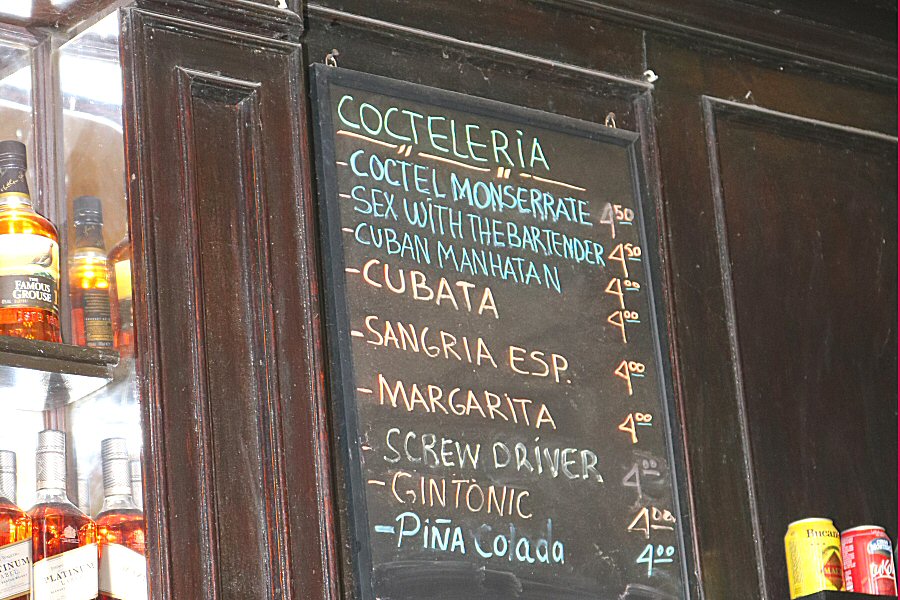 COCTELERiA
-COCTEL MONSERRATE 4.50
-SEX WITH THE BARTENDER 4.50
-CUBAN MANHATAN 4.00
-CUBATA 4.00
-SANGRIA ESP. 4.00
-MARGARITA 4.00
-SCREW DRIVER 4.00
-GINTÒNIC 4.00
-PiÑA Colada 4.00
THE
FAMOUS
GROUSE
PLATINUM
Bucan